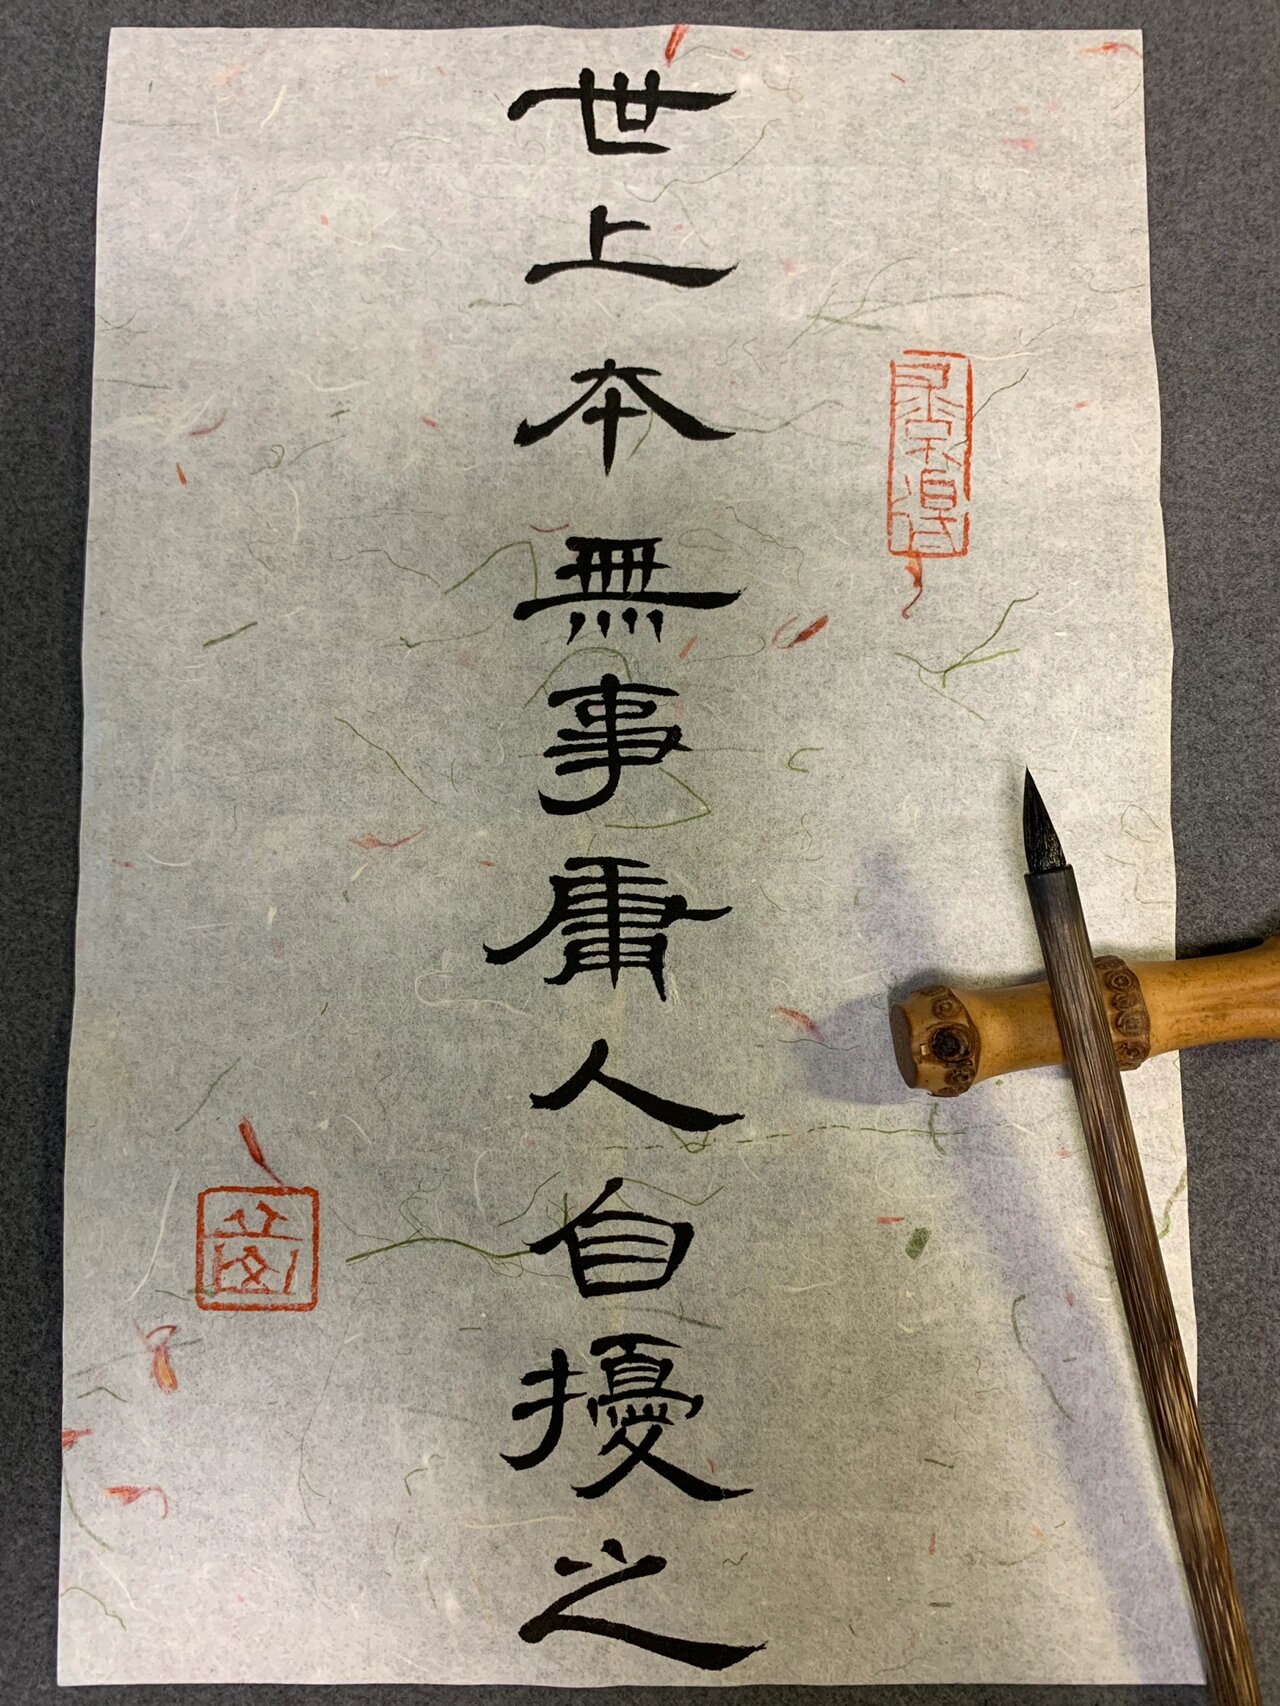 世上本無事庸人自擾之